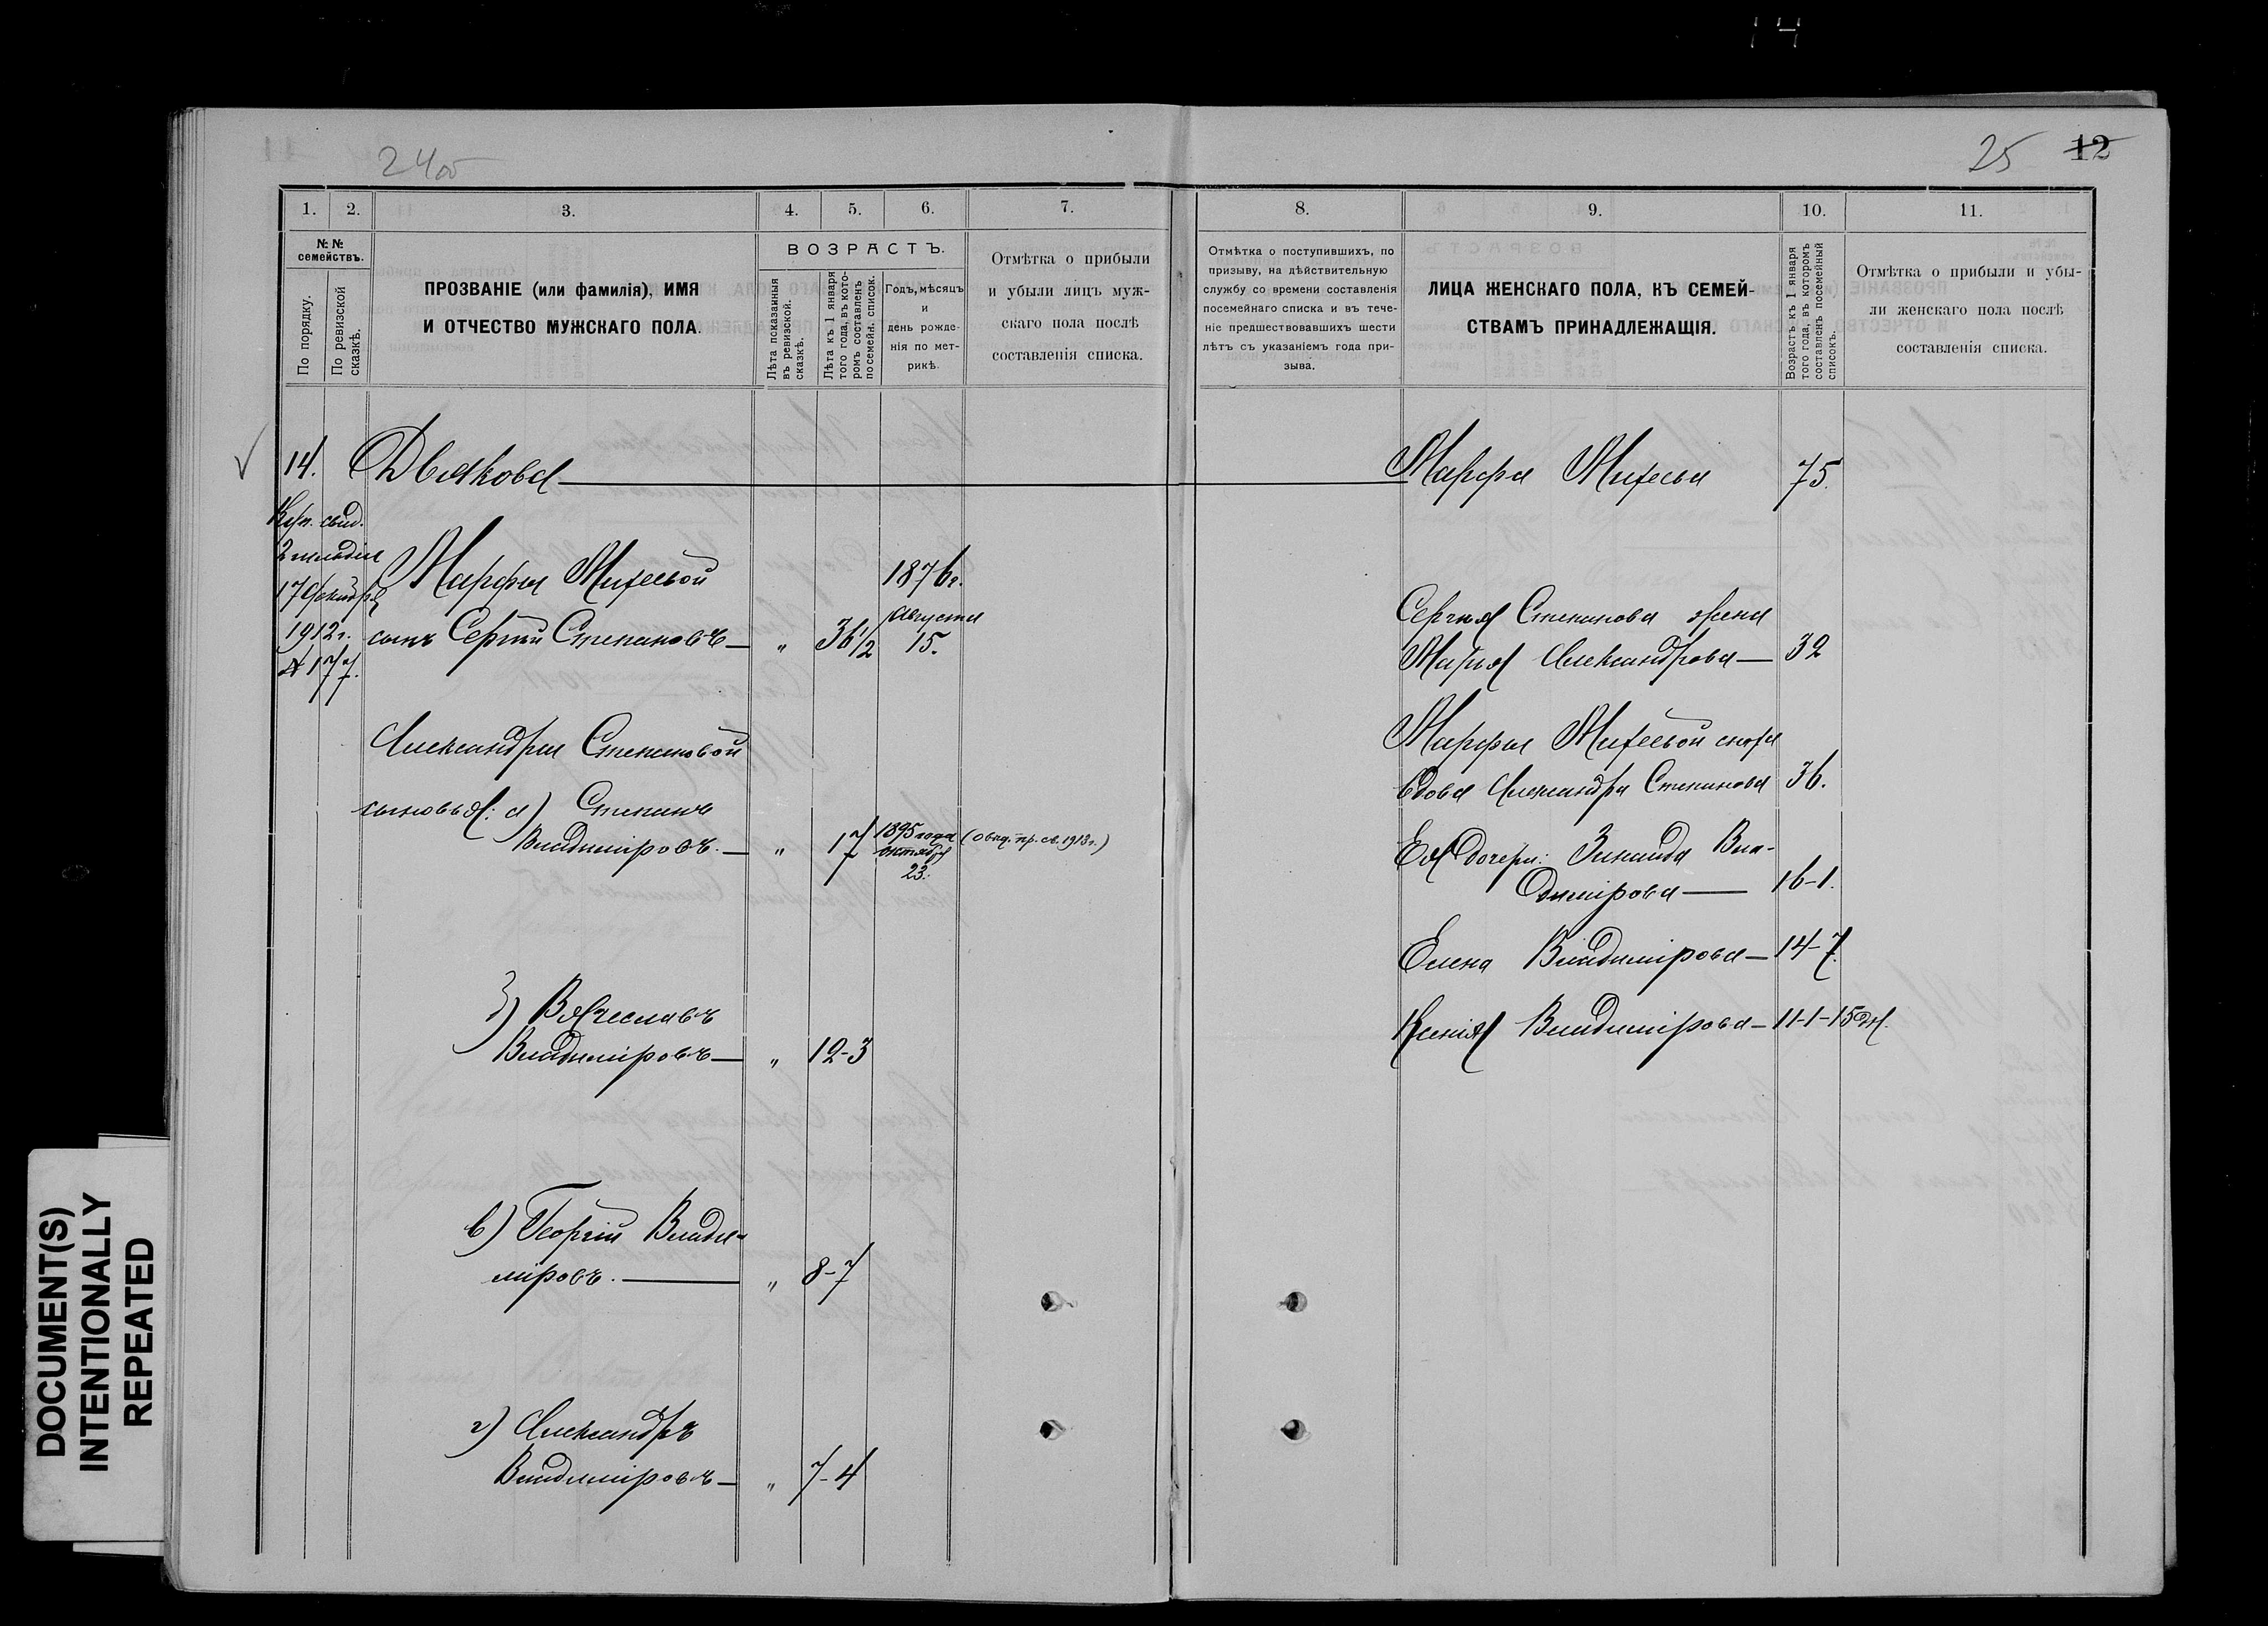 14
24об
25 12
1. 2. 3. 4. 5. 6. 7. 8. 9. 10. 11.
№ № семействъ.
По порядку.
По ревизской сказкѣ.
ПРОЗВАНІЕ (или фамилія), ИМЯ
И ОТЧЕСТВО МУЖСКАГО ПОЛА.
ВОЗРАСТЪ.
Лѣта показанныя
въ ревизской
сказкѣ.
Лѣта къ 1 января
того года, въ кото-
ромъ составленъ
посемейн. список.
Годъ, мѣсяцъ
и
день рожде-
нія по мет-
рикѣ.
Отмѣтка о прибыли
и убыли лицъ муж-
скаго пола послѣ
составленія списка.
Отмѣтка о поступившихъ, по
призыву, на дѣйствительную
службу со времени составленія
посемейнаго списка и въ тече-
ніе предшествовавшихъ шести
лѣтъ съ указаніемъ года при-
зыва.
ЛИЦА ЖЕНСКАГО ПОЛА, КЪ СЕМЕЙ-
СТВАМЪ ПРИНАДЛЕЖАЩІЯ.
Возрастъ къ 1 января
того года, въ которомъ
составленъ посемейный
списокъ.
Отмѣтка о прибыли и убы-
ли женскаго пола послѣ
составленія списка.
14. Двякова Марфа Михеева 75.
Куп. свид.
2 гильдіи
17 Декабря
1912 г.
№ 177.
Марфы Михеевой 1876 г.
сынъ Сергѣй Степановъ " 36 1/2 Августа 15.
Сергѣя Степанова жена
Марія Александрова 32
Александры Степановой
сыновья: а) Степанъ
Владиміровъ. " 17 1895 года октября 23. (Овид. пр. св. 1913 г.)
Марфы Михеевой сноха
вдова Александра Степанова 36.
Ея дочери: Зинаида Вла-
димірова 16-1.
Елена Владимірова 14-7.
Ксенія Владимірова 11-1-15 дн.
б) Вячеславъ
Владиміровъ " 12-3
в) Георгій Влади-
міровъ. " 8-7
г) Александръ
Владиміровъ " 7-4
DOCUMENT(S)
INTENTIONALLY
REPEATED